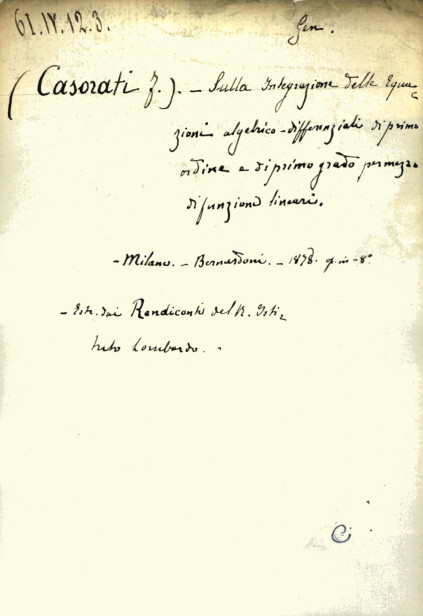 61.IV.12.3.
Gen.
(Casorati F.). - Sulla Integrazione delle Equa-
zioni algebrico-differenziali di primo
ordine e di primo grado per mezzo
di funzioni lineari.
- Milano. - Bernardoni. - 1878. in-8°
- Estr. dai Rendiconti del R. Isti-
tuto Lombardo. -
C